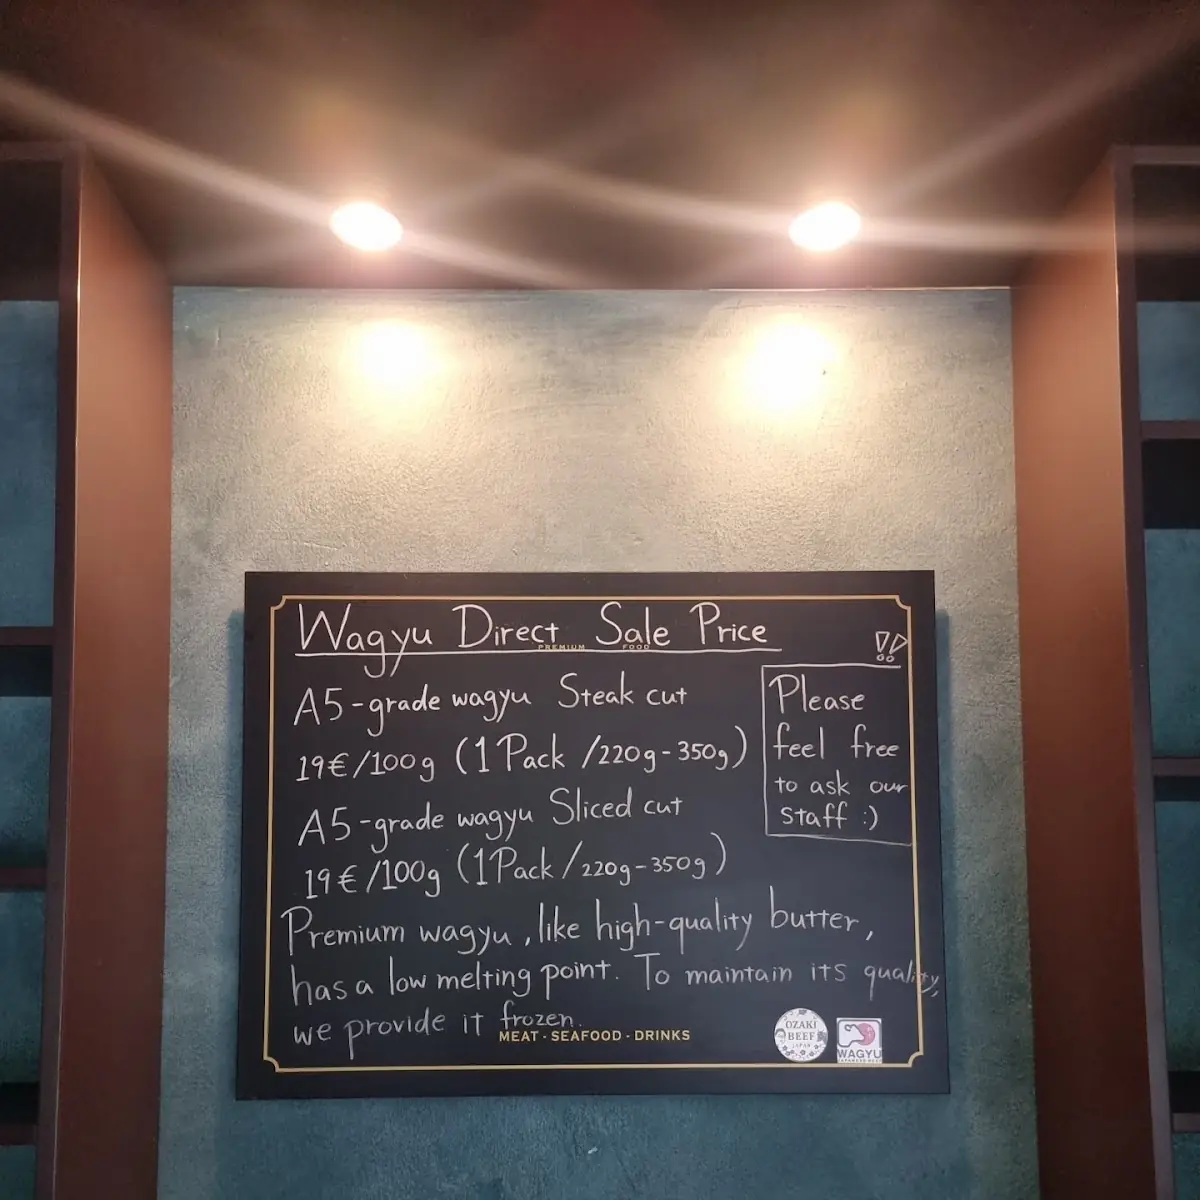 Wagyu Direct Sale Price
PREMIUM FOOD
!!
A5-grade wagyu Steak cut
19€/100g (1 Pack /220g-350g)
A5-grade wagyu Sliced cut
19€/100g (1 Pack /220g-350g)
Please
feel free
to ask our
staff :)
Premium wagyu, like high-quality butter,
has a low melting point. To maintain its quality,
we provide it frozen.
MEAT · SEAFOOD · DRINKS
OZAKI
BEEF
JAPAN
WAGYU